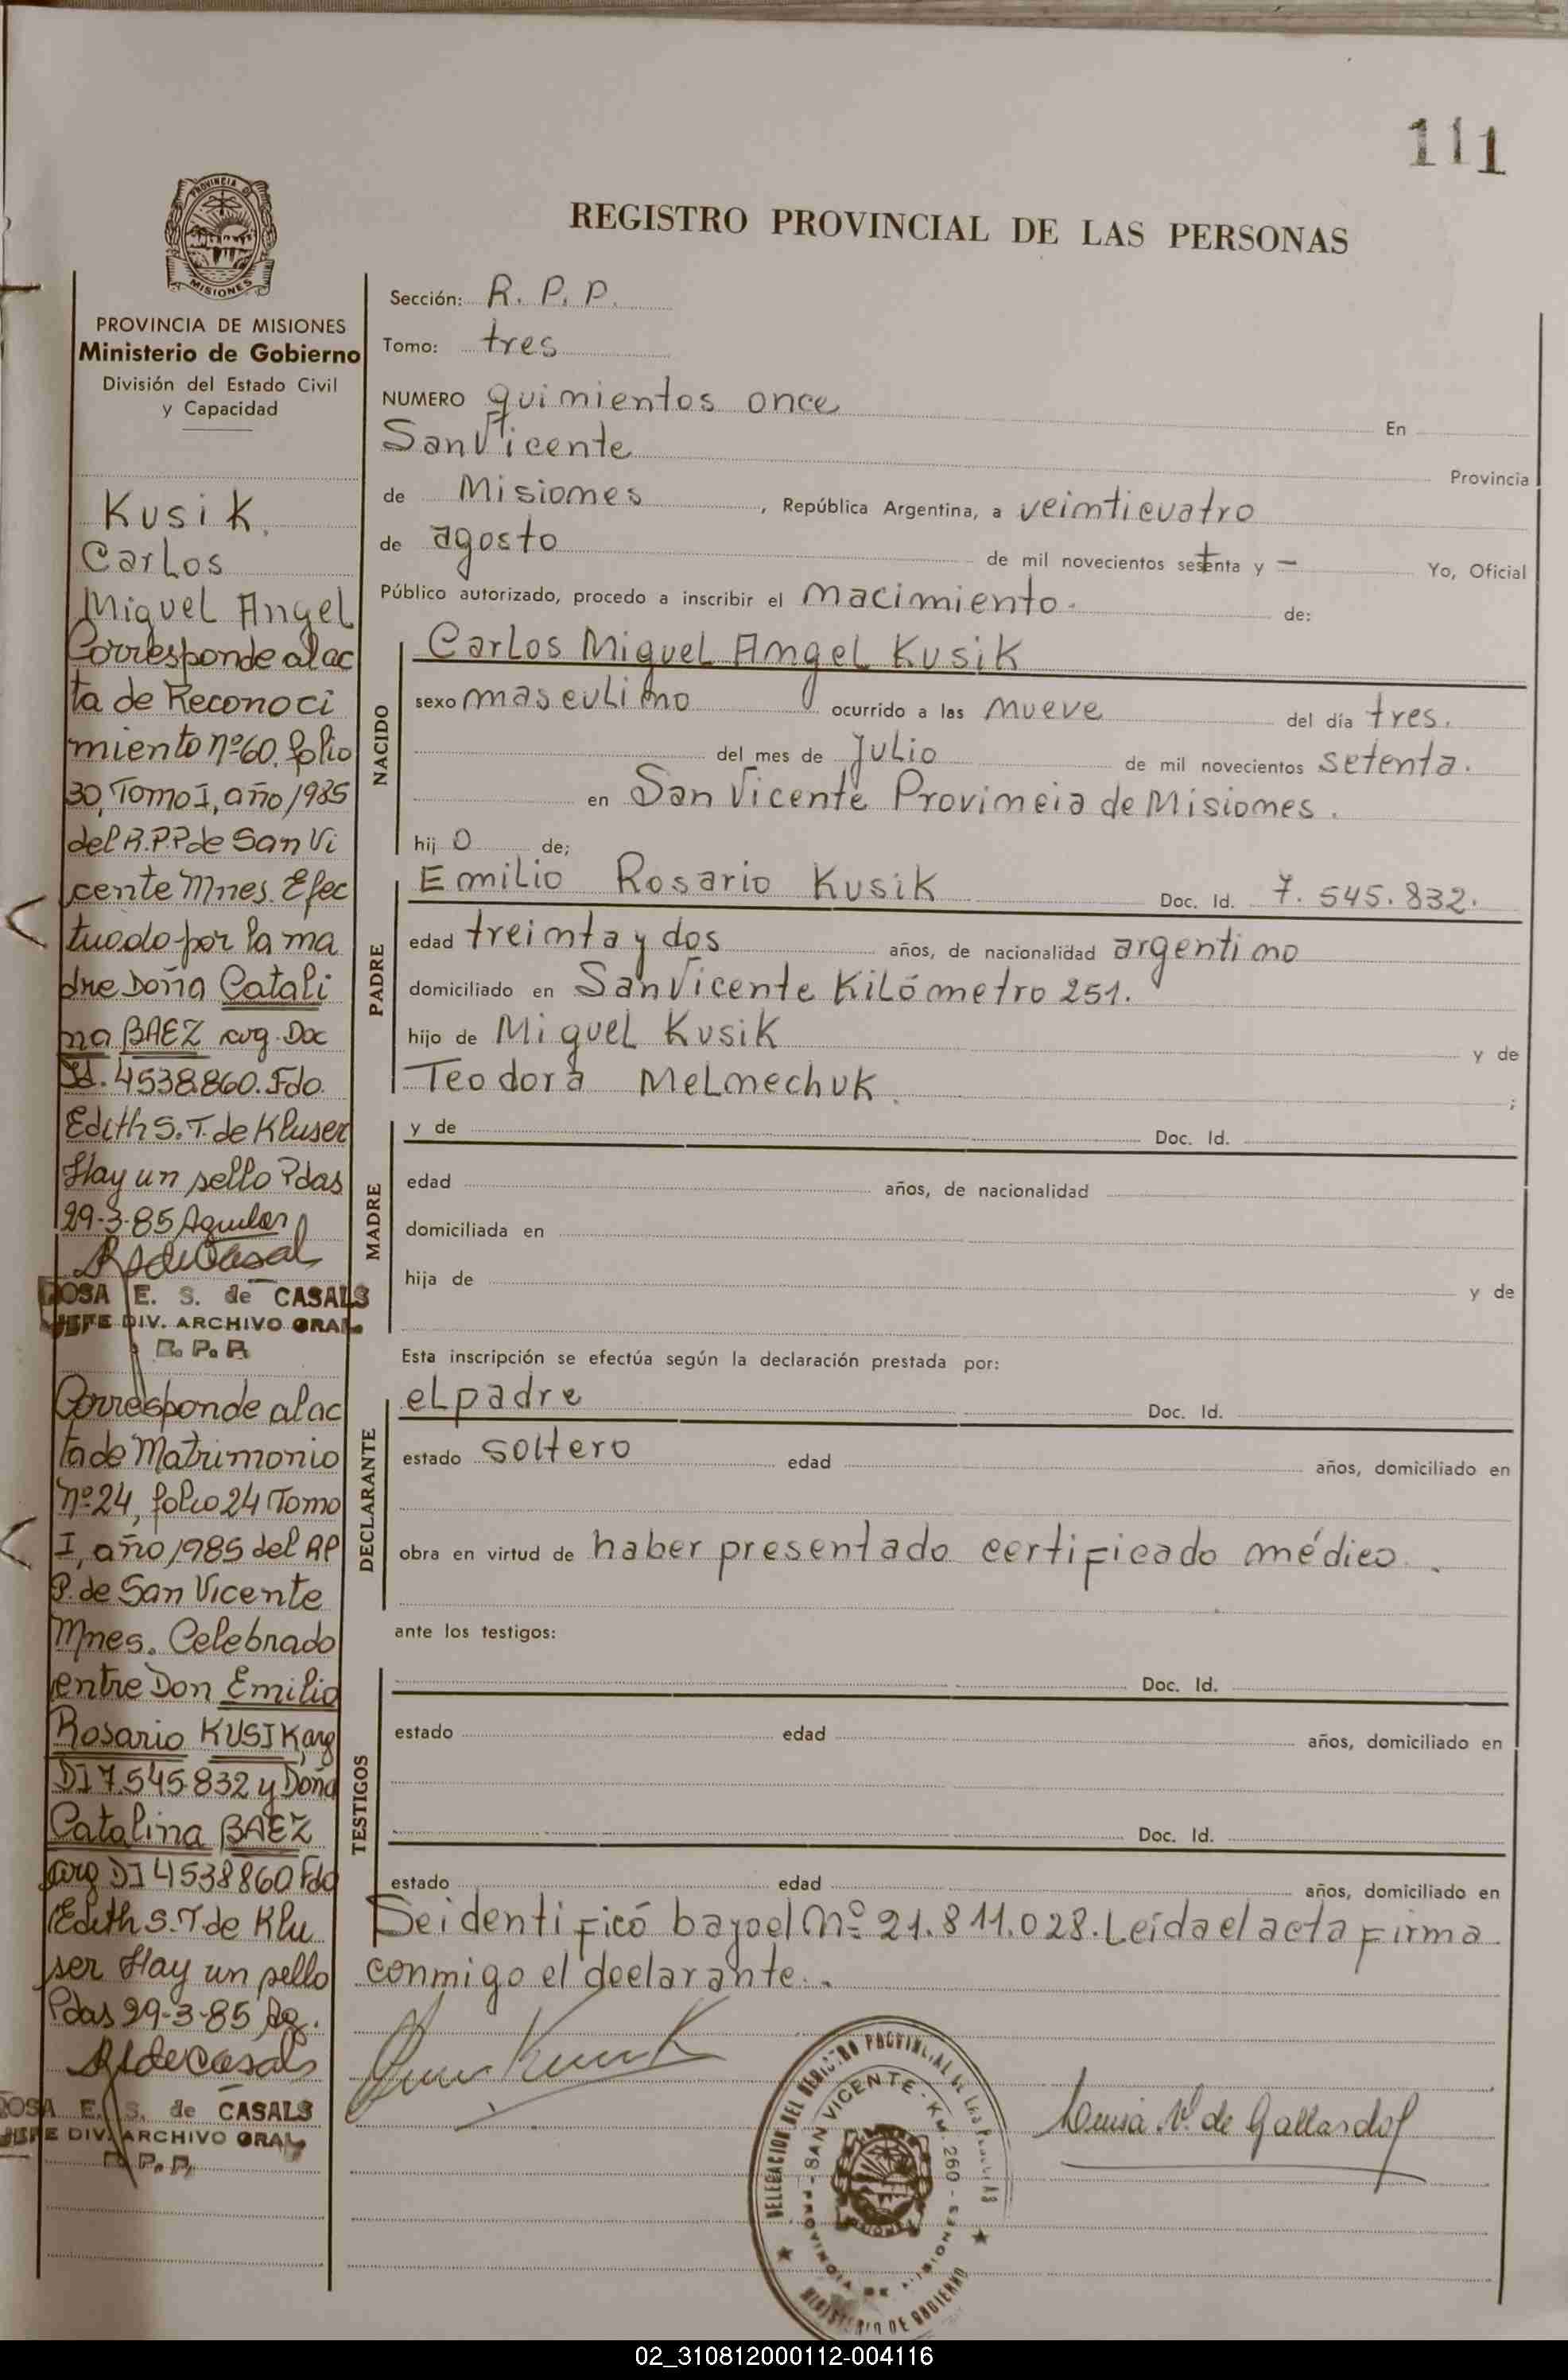 111
PROVINCIA DE
MISIONES
PROVINCIA DE MISIONES
Ministerio de Gobierno
División del Estado Civil
y Capacidad
Kusik.
Carlos
Miguel Angel
Corresponde al ac
ta de Reconoci
miento nº 60, folio
30, Tomo I, año 1985
del R.P.P de San Vi
cente Mnes. Efec
tuado por la ma
dre Doña Catali
na BAEZ arg. Doc
Id. 4538.860. Fdo.
Edith S. T. de Kluser
Hay un sello Pdas
29-3-85 Aguilar
ROSA E. S. de CASALS
JEFE DIV. ARCHIVO GRAL.
R. P. P.
Corresponde al ac
ta de Matrimonio
nº 24, folio 24 Tomo
I, año 1985 del RP
P. de San Vicente
Mnes. Celebrado
entre Don Emilio
Rosario KUSIK, arg
DI 7.545.832 y Doña
Catalina BAEZ
arg DI 4538860 Fdo
Edith S. T de Klu
ser Hay un sello
Pdas 29-3-85 Ag.
ROSA E. S. de CASALS
JEFE DIV. ARCHIVO GRAL.
R. P. P.
REGISTRO PROVINCIAL DE LAS PERSONAS
Sección: R. P. P.
Tomo: tres
NUMERO quinientos once En
San Vicente Provincia
de Misiones, República Argentina, a veinticuatro
de agosto de mil novecientos setenta y — Yo, Oficial
Público autorizado, procedo a inscribir el nacimiento. de:
NACIDO
Carlos Miguel Angel Kusik
sexo masculino ocurrido a las nueve del día tres.
del mes de Julio de mil novecientos setenta.
en San Vicente Provincia de Misiones.
hij o de;
PADRE
Emilio Rosario Kusik Doc. Id. 7.545.832.
edad treinta y dos años, de nacionalidad argentino
domiciliado en San Vicente Kilómetro 251.
hijo de Miguel Kusik y de
Teodora Melnechuk ;
MADRE
y de Doc. Id.
edad años, de nacionalidad
domiciliada en
hija de y de
Esta inscripción se efectúa según la declaración prestada por:
DECLARANTE
el padre Doc. Id.
estado soltero edad años, domiciliado en
obra en virtud de haber presentado certificado médico.
ante los testigos:
TESTIGOS
Doc. Id.
estado edad años, domiciliado en
Doc. Id.
estado edad años, domiciliado en
Se identificó bajo el Nº 21.811.028. Leída el acta firma
conmigo el declarante.
DELEGACION DEL REGISTRO PROVINCIAL DE LAS PERSONAS
SAN VICENTE - KM 260 - MISIONES
MINISTERIO DE GOBIERNO
de Gallardo
02_310812000112-004116